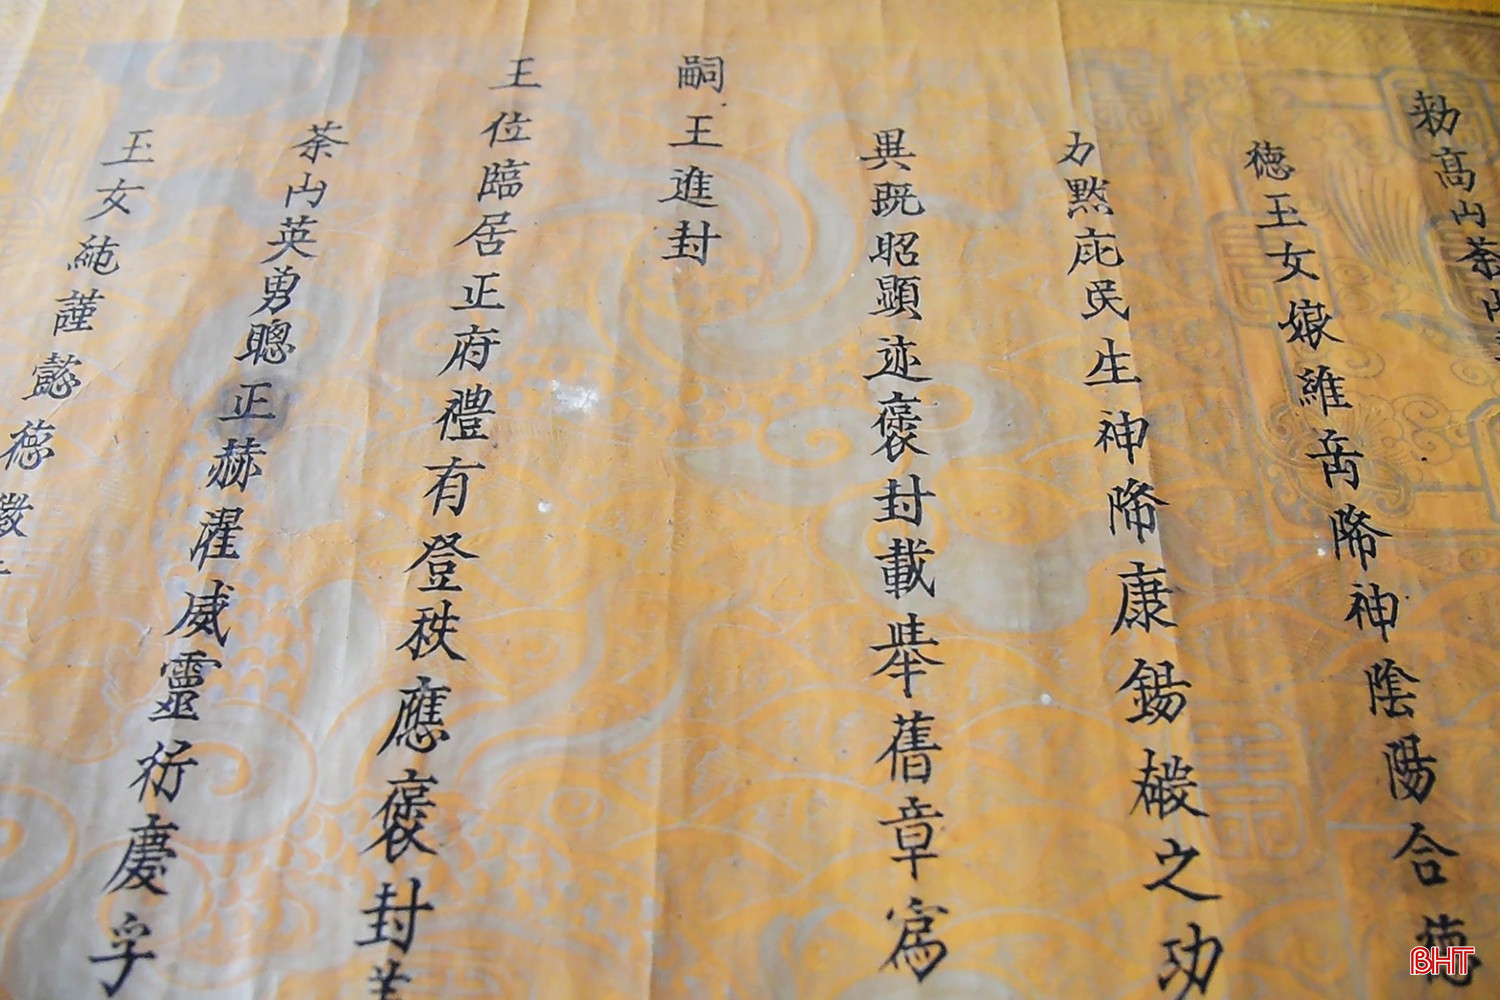 勑高山茶山
德玉女娘維岳降神陰陽合德
力黙庇民生神降康錫嘏之功
異既昭顯迹褒封載举舊章爲
嗣王進封
王位臨居正府禮有登秩應褒封
茶山英勇聰正赫濯威靈衍慶孚
玉女純謹懿德徽
BHT